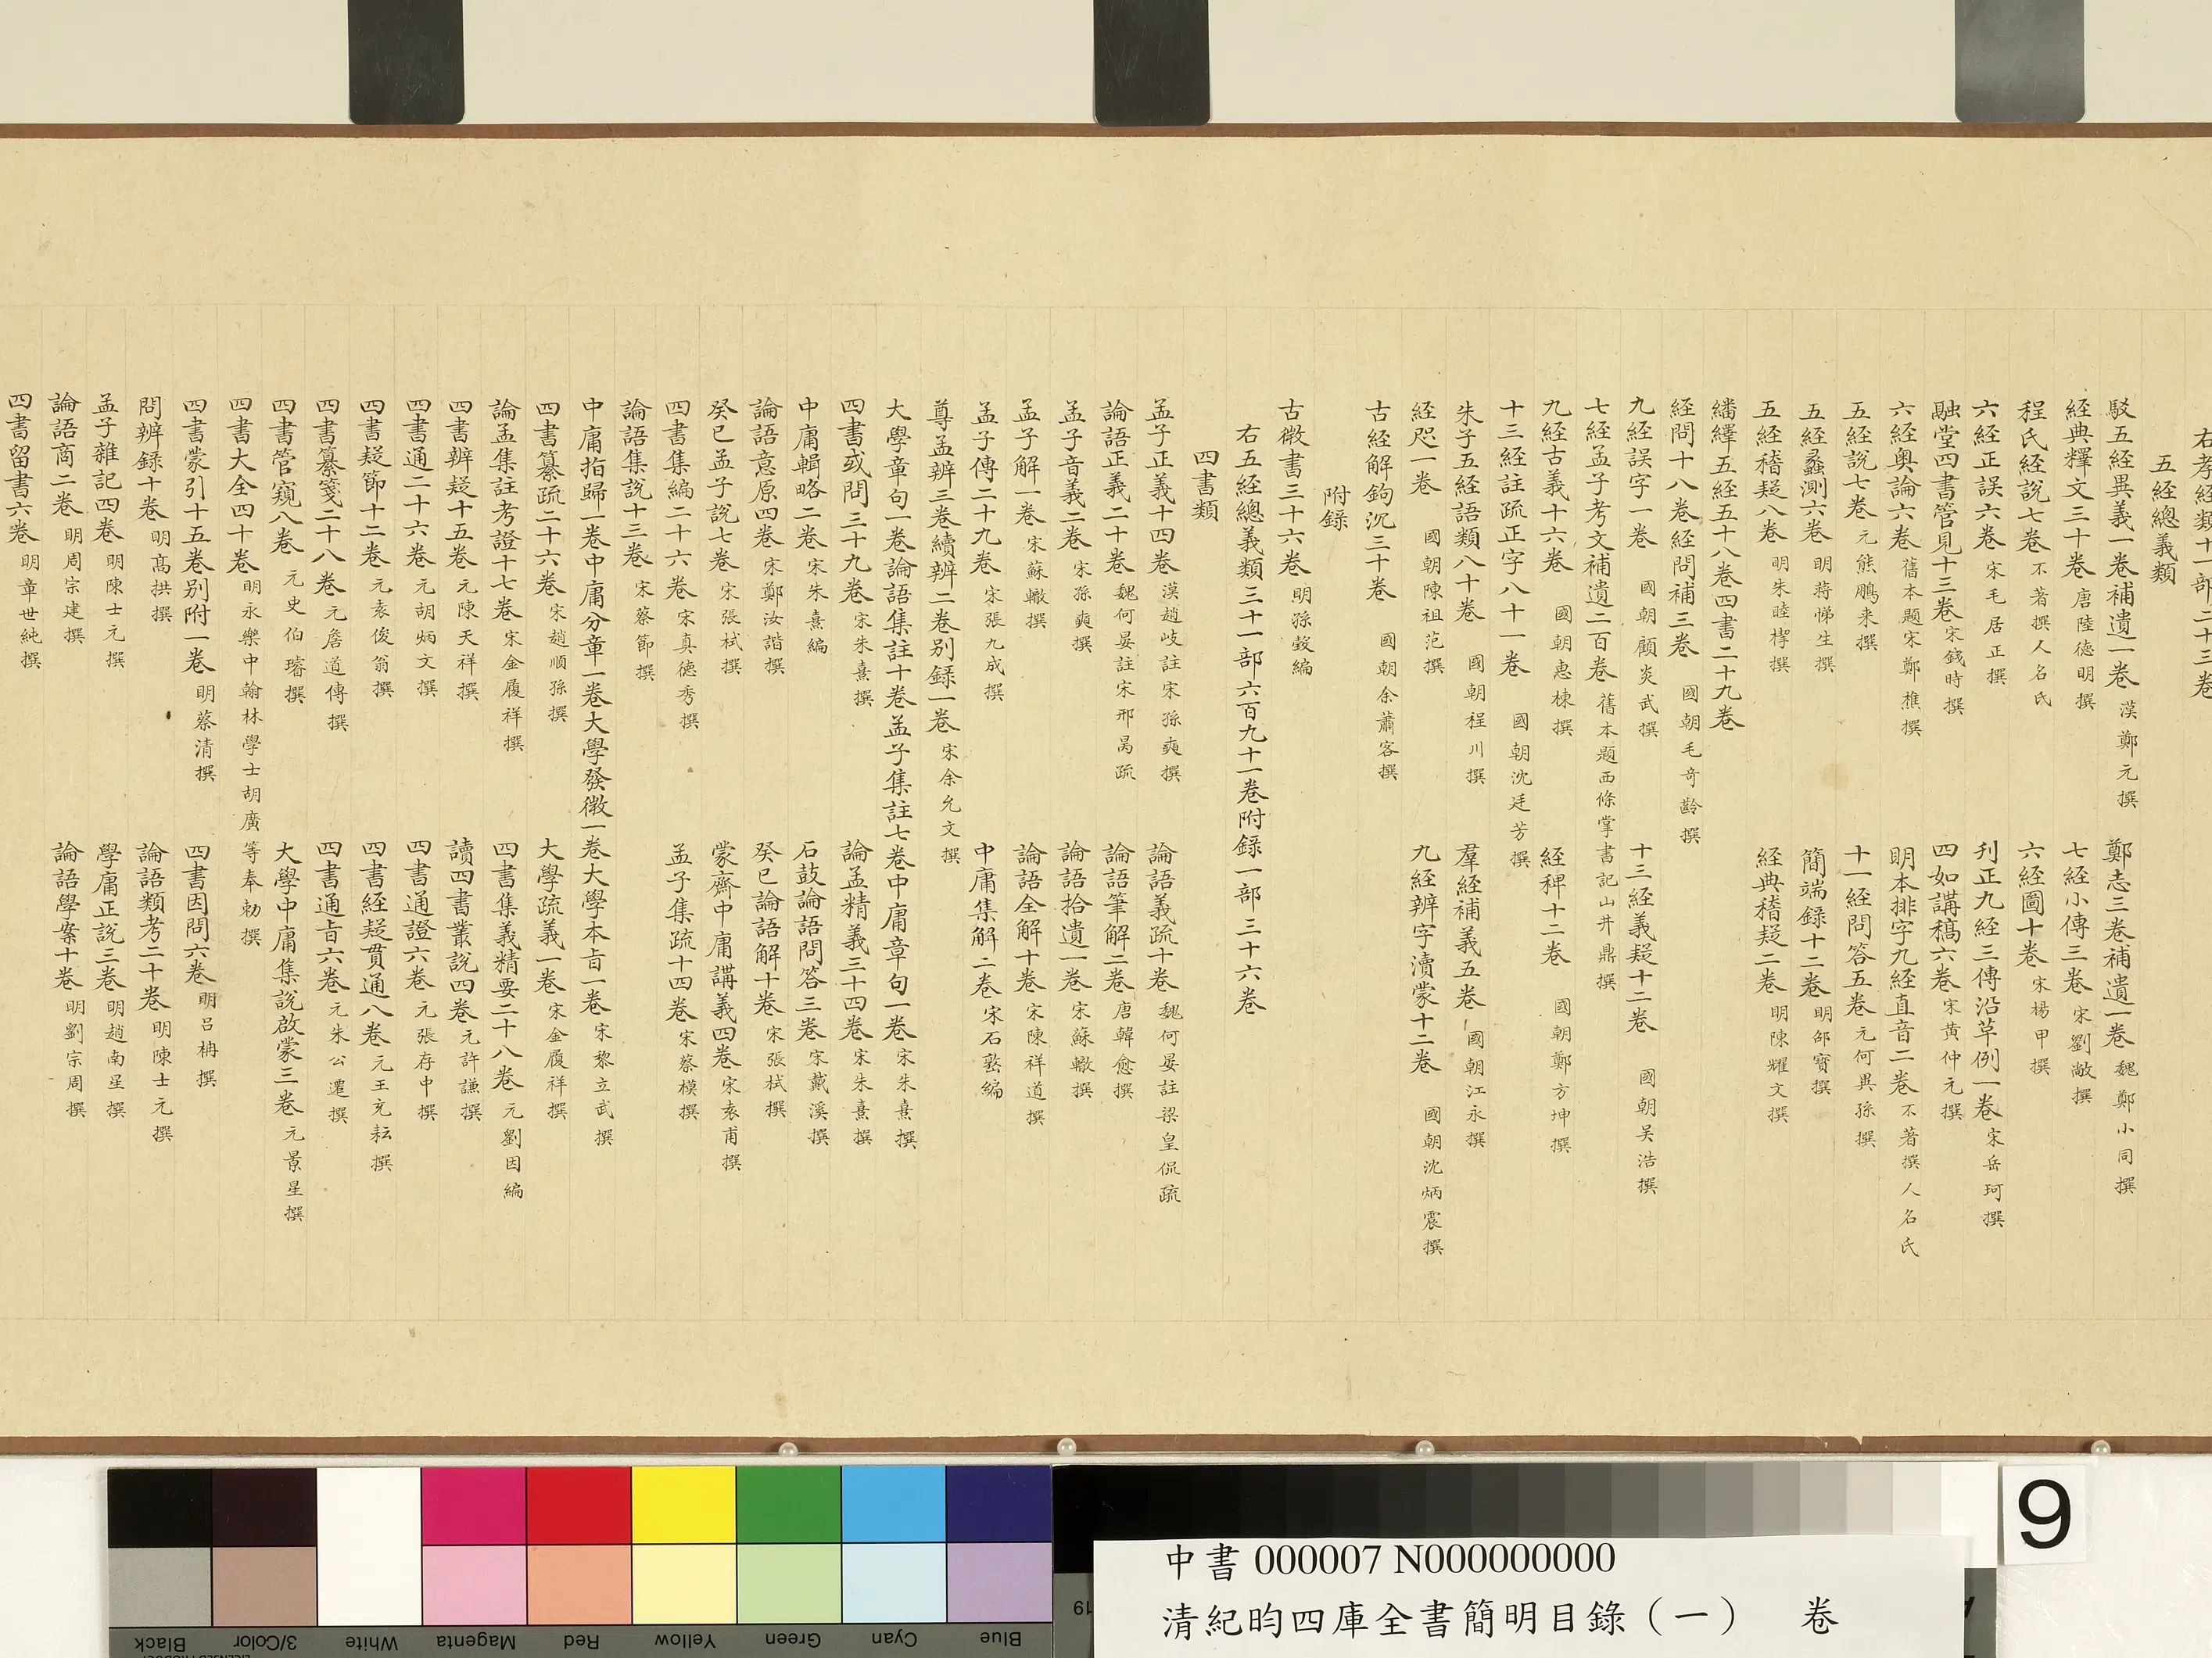 右孝經類十一部二十三卷
五經總義類
駁五經異義一卷補遺一卷 漢鄭元撰 鄭志三卷補遺一卷 魏鄭小同撰
經典釋文三十卷 唐陸德明撰 七經小傳三卷 宋劉敞撰
程氏經說七卷 不著撰人名氏 六經圖十卷 宋楊甲撰
六經正誤六卷 宋毛居正撰 刊正九經三傳沿革例一卷 宋岳珂撰
融堂四書管見十三卷 宋錢時撰 四如講稿六卷 宋黄仲元撰
六經奥論六卷 舊本題宋鄭樵撰 明本排字九經直音二卷 不著撰人名氏
五經說七卷 元熊朋来撰 十一經問答五卷 元何異孫撰
五經蠡測六卷 明蒋悌生撰 簡端録十二卷 明邵寶撰
五經稽疑八卷 明朱睦㮮撰 經典稽疑二卷 明陳耀文撰
繙繹五經五十八卷四書二十九卷
經問十八卷經問補三卷 國朝毛奇齡撰
九經誤字一卷 國朝顧炎武撰 十三經義疑十二卷 國朝吴浩撰
七經孟子考文補遺二百卷 舊本題西條掌書記山井鼎撰
九經古義十六卷 國朝惠棟撰 經稗十二卷 國朝鄭方坤撰
十三經註疏正字八十一卷 國朝沈廷芳撰
朱子五經語類八十卷 國朝程川撰 羣經補義五卷 國朝江永撰
經咫一卷 國朝陳祖范撰 九經辨字瀆蒙十二卷 國朝沈炳震撰
古經解鉤沉三十卷 國朝余蕭客撰
附録
古微書三十六卷 明孫瑴編
右五經總義類三十一部六百九十一卷附録一部三十六卷
四書類
孟子正義十四卷 漢趙岐註宋孫奭撰 論語義疏十卷 魏何晏註梁皇侃疏
論語正義二十卷 魏何晏註宋邢昺疏 論語筆解二卷 唐韓愈撰
孟子音義二卷 宋孫奭撰 論語拾遺一卷 宋蘇轍撰
孟子解一卷 宋蘇轍撰 論語全解十卷 宋陳祥道撰
孟子傳二十九卷 宋張九成撰 中庸集解二卷 宋石㪉編
尊孟辨三卷續辨二卷别録一卷 宋余允文撰
大學章句一卷論語集註十卷孟子集註七卷中庸章句一卷 宋朱熹撰
四書或問三十九卷 宋朱熹撰 論孟精義三十四卷 宋朱熹撰
中庸輯略二卷 宋朱熹編 石鼓論語問答三卷 宋戴溪撰
論語意原四卷 宋鄭汝諧撰 癸巳論語解十卷 宋張栻撰
癸巳孟子說七卷 宋張栻撰 蒙齋中庸講義四卷 宋袁甫撰
四書集編二十六卷 宋真德秀撰 孟子集疏十四卷 宋蔡模撰
論語集說十三卷 宋蔡節撰
中庸指歸一卷中庸分章一卷大學發微一卷大學本旨一卷 宋黎立武撰
四書纂疏二十六卷 宋趙順孫撰 大學疏義一卷 宋金履祥撰
論孟集註考證十七卷 宋金履祥撰 四書集義精要二十八卷 元劉因編
四書辨疑十五卷 元陳天祥撰 讀四書叢說四卷 元許謙撰
四書通二十六卷 元胡炳文撰 四書通證六卷 元張存中撰
四書疑節十二卷 元袁俊翁撰 四書經疑貫通八卷 元王充耘撰
四書纂箋二十八卷 元詹道傳撰 四書通旨六卷 元朱公遷撰
四書管窺八卷 元史伯璿撰 大學中庸集說啟蒙三卷 元景星撰
四書大全四十卷 明永樂中翰林學士胡廣等奉勅撰
四書蒙引十五卷别附一卷 明蔡清撰 四書因問六卷 明吕柟撰
問辨録十卷 明髙拱撰 論語類考二十卷 明陳士元撰
孟子雜記四卷 明陳士元撰 學庸正說三卷 明趙南星撰
論語商二卷 明周宗建撰 論語學案十卷 明劉宗周撰
四書留書六卷 明章世純撰
Black 3/Color White Magenta Red Yellow Green Cyan Blue
9
中書 000007 N000000000
清紀昀四庫全書簡明目錄（一） 卷
19